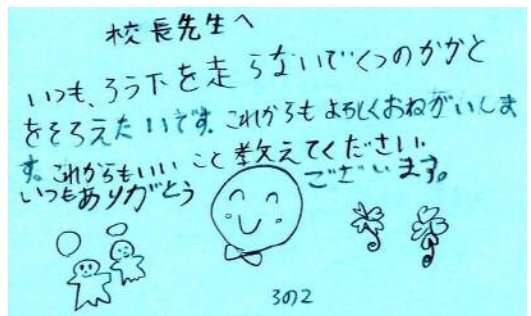 校長先生へ
いつも、ろう下を走らないでくつのかかと
をそろえたいです。これからもよろしくおねがいしま
す。これからもいいこと教えてください。
いつもありがとうございます。
3の2